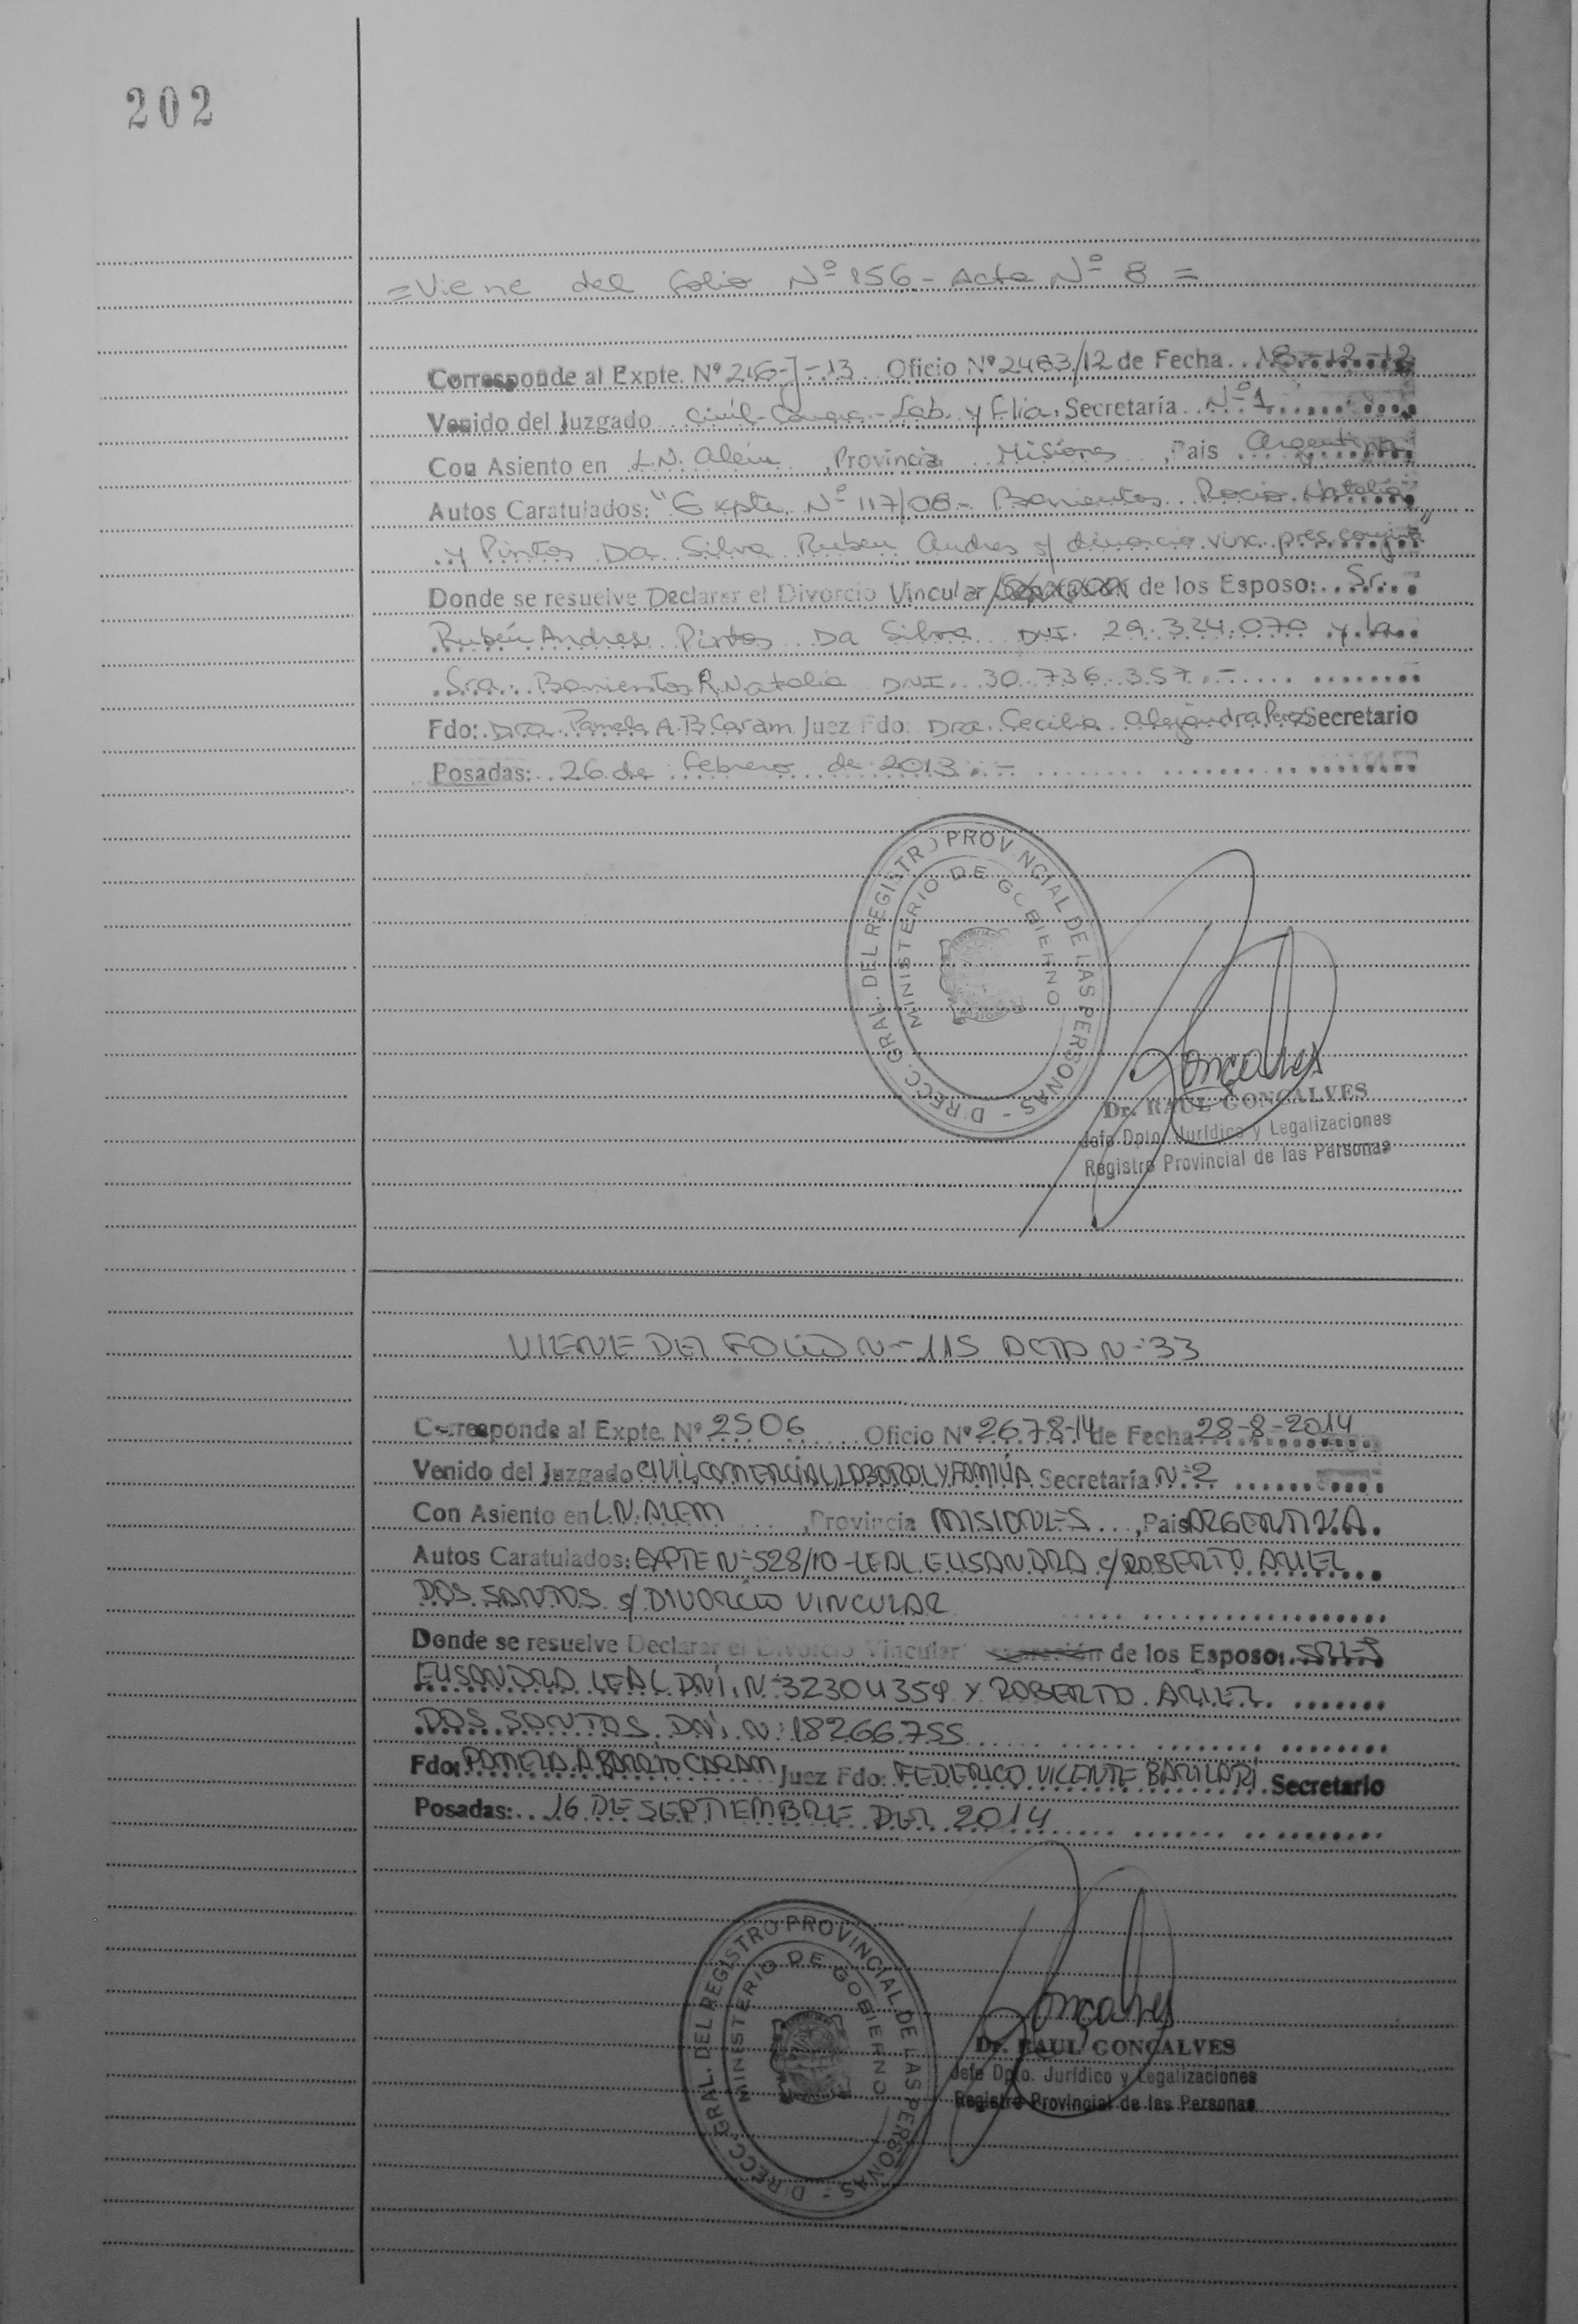 202
=Viene del folio Nº 156 - Acta Nº 8 =
Corresponde al Expte. Nº 216-J-13 Oficio Nº 2483/12 de Fecha 18-12-12
Venido del Juzgado Civil-Comerc.-Lab. y flia. Secretaría Nº 1
Con Asiento en L.N. Alem , Provincia Misiones , País Argentina
Autos Caratulados: "Expte. Nº 117/08 - Barrientos Rocio Natalia
y Pintos Da Silva Ruben Andres s/ divorcio vinc. pres. conjta"
Donde se resuelve Declarar el Divorcio Vincular/Separación de los Esposo: Sr.
Rubén Andres Pintos Da Silva DNI. 29.324.070 y la
Sra. Barrientos R. Natalia DNI. 30.736.357.-
Fdo: Dra. Pamela A. B. Caram Juez Fdo: Dra. Cecilia Alejandra Perez Secretario
Posadas: 26 de febrero de 2013.-
DIRECC. GRAL. DEL REGISTRO PROVINCIAL DE LAS PERSONAS -
MINISTERIO DE GOBIERNO
Gonçalves
Dr. RAUL GONCALVES
Jefe Dpto. Jurídico y Legalizaciones
Registro Provincial de las Personas
VIENE DEL FOLIO N- 115 ACTA N- 33
Corresponde al Expte. Nº 2506 Oficio Nº 2678-14 de Fecha 28-8-2014
Venido del Juzgado CIVIL, COMERCIAL, LABORAL Y FAMILIA Secretaría N- 2
Con Asiento en L.N. ALEM , Provincia MISIONES , País ARGENTINA.
Autos Caratulados: EXPTE N- 528/10 - LEAL ELISANDRA c/ ROBERTO ARIEL
DOS SANTOS s/ DIVORCIO VINCULAR
Donde se resuelve Declarar el Divorcio Vincular separación de los Esposo: SRES
ELISANDRA LEAL DNI. N- 32304359 Y ROBERTO ARIEL
DOS SANTOS, DNI. N- 18266755
Fdo: PAMELA A BARRIO CARAM Juez Fdo: FEDERICO VICENTE BARILARI Secretario
Posadas: 16 DE SEPTIEMBRE DEL 2014
DIRECC. GRAL. DEL REGISTRO PROVINCIAL DE LAS PERSONAS -
MINISTERIO DE GOBIERNO
Gonçalves
Dr. RAUL GONCALVES
Jefe Dpto. Jurídico y Legalizaciones
Registro Provincial de las Personas